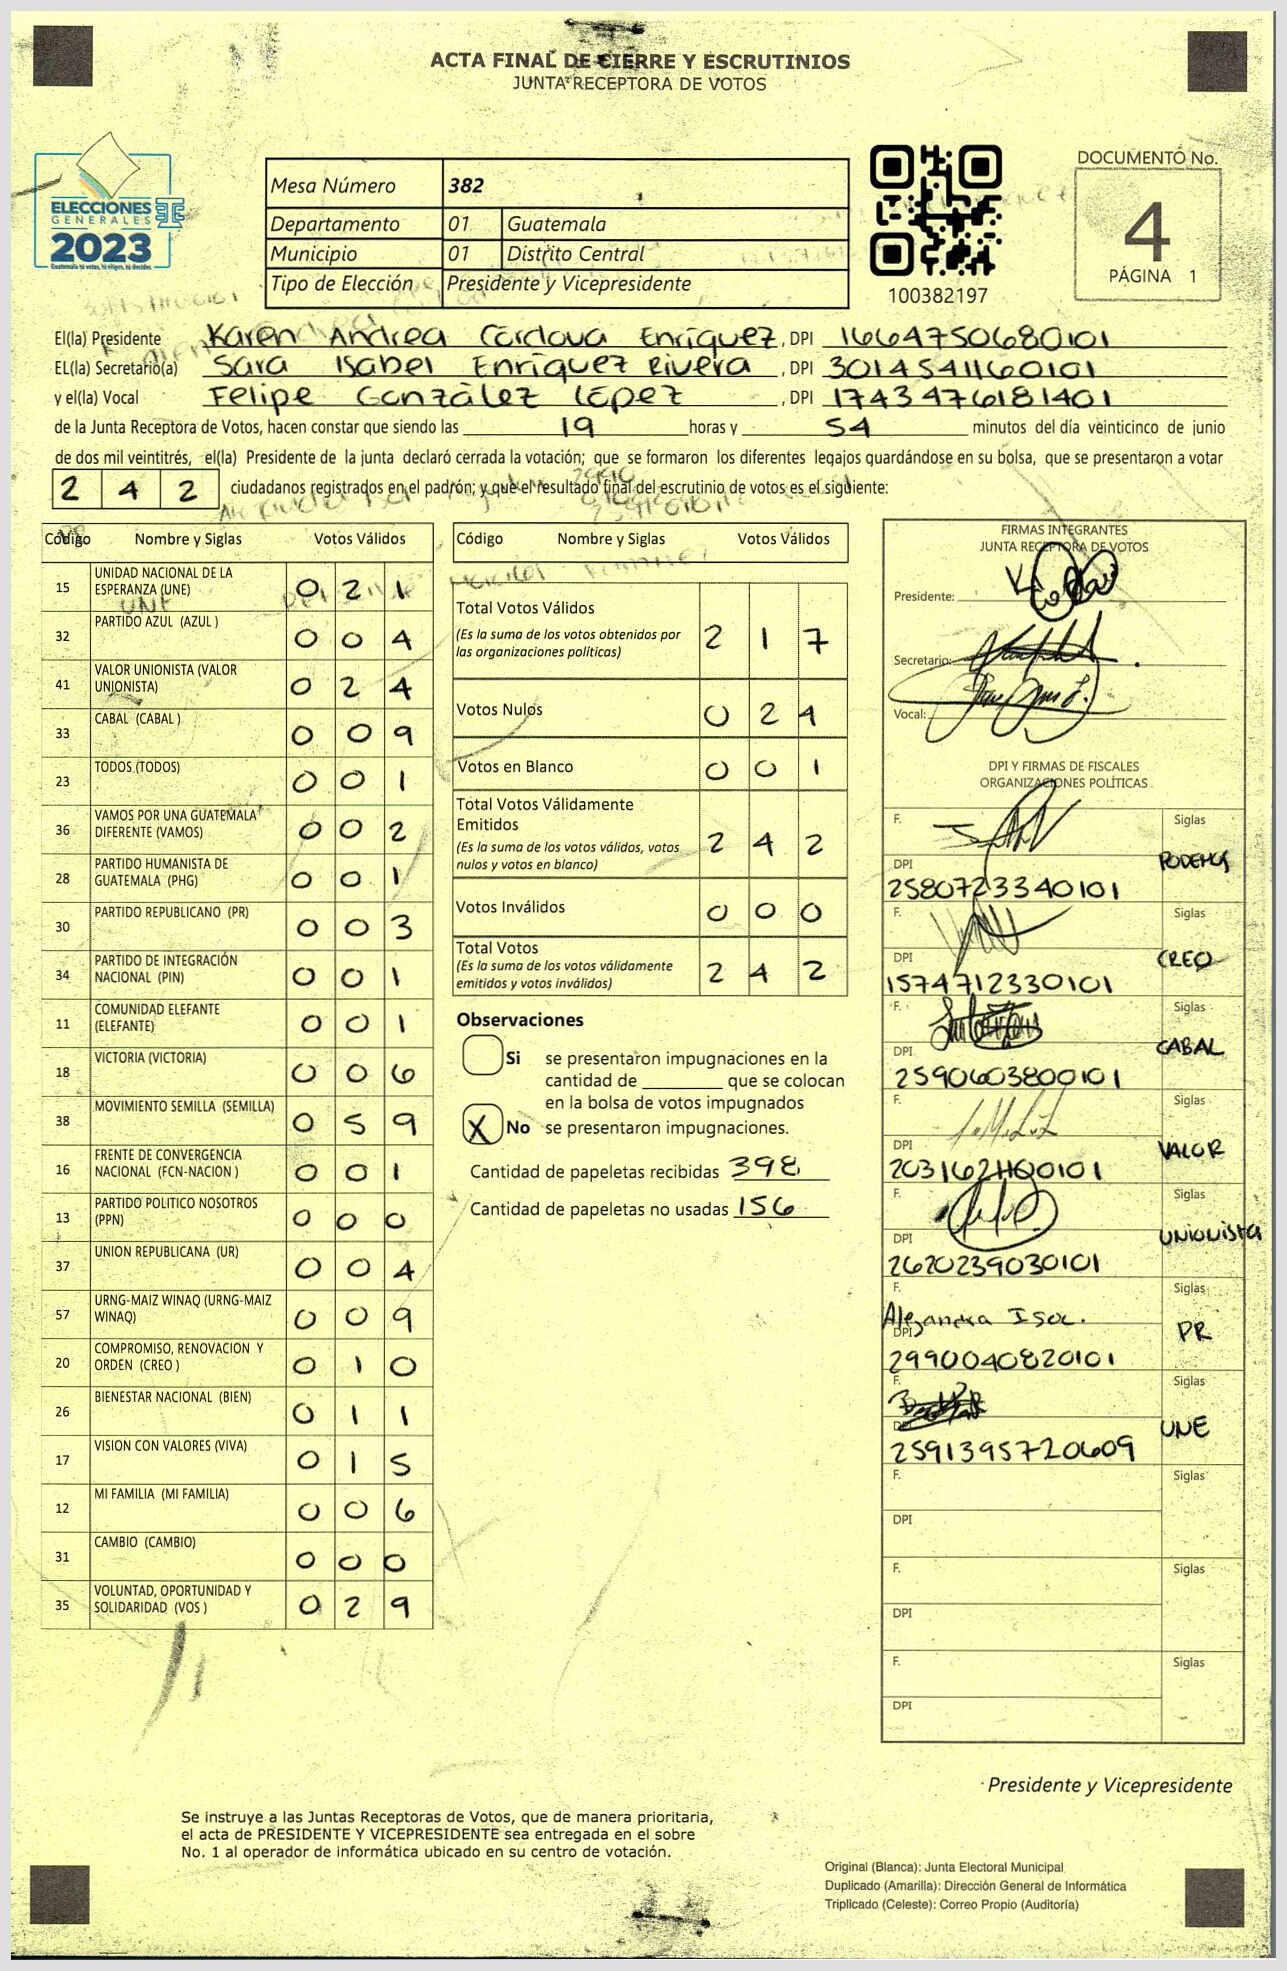 ACTA FINAL DE CIERRE Y ESCRUTINIOS
JUNTA RECEPTORA DE VOTOS
ELECCIONES
GENERALES
2023
Guatemala tú votas, tú eliges, tú decides
Mesa Número 382
Departamento 01 Guatemala
Municipio 01 Distrito Central
Tipo de Elección Presidente y Vicepresidente
100382197
DOCUMENTO No.
4
PÁGINA 1
El(la) Presidente Karen Andrea Cordova Enríquez, DPI 1664750680101
EL(la) Secretario(a) Sara Isabel Enríquez Rivera, DPI 3014541160101
y el(la) Vocal Felipe González López, DPI 1743476181401
de la Junta Receptora de Votos, hacen constar que siendo las 19 horas y 54 minutos del día veinticinco de junio
de dos mil veintitrés, el(la) Presidente de la junta declaró cerrada la votación; que se formaron los diferentes legajos guardándose en su bolsa, que se presentaron a votar
242 ciudadanos registrados en el padrón; y que el resultado final del escrutinio de votos es el siguiente:
Código Nombre y Siglas Votos Válidos
15 UNIDAD NACIONAL DE LA
ESPERANZA (UNE) 0 2 1
32 PARTIDO AZUL (AZUL ) 0 0 4
41 VALOR UNIONISTA (VALOR
UNIONISTA) 0 2 4
33 CABAL (CABAL ) 0 0 9
23 TODOS (TODOS) 0 0 1
36 VAMOS POR UNA GUATEMALA
DIFERENTE (VAMOS) 0 0 2
28 PARTIDO HUMANISTA DE
GUATEMALA (PHG) 0 0 1
30 PARTIDO REPUBLICANO (PR) 0 0 3
34 PARTIDO DE INTEGRACIÓN
NACIONAL (PIN) 0 0 1
11 COMUNIDAD ELEFANTE
(ELEFANTE) 0 0 1
18 VICTORIA (VICTORIA) 0 0 6
38 MOVIMIENTO SEMILLA (SEMILLA) 0 5 9
16 FRENTE DE CONVERGENCIA
NACIONAL (FCN-NACION ) 0 0 1
13 PARTIDO POLITICO NOSOTROS
(PPN) 0 0 0
37 UNION REPUBLICANA (UR) 0 0 4
57 URNG-MAIZ WINAQ (URNG-MAIZ
WINAQ) 0 0 9
20 COMPROMISO, RENOVACION Y
ORDEN (CREO ) 0 1 0
26 BIENESTAR NACIONAL (BIEN) 0 1 1
17 VISION CON VALORES (VIVA) 0 1 5
12 MI FAMILIA (MI FAMILIA) 0 0 6
31 CAMBIO (CAMBIO) 0 0 0
35 VOLUNTAD, OPORTUNIDAD Y
SOLIDARIDAD (VOS ) 0 2 9
Código Nombre y Siglas Votos Válidos
Total Votos Válidos
(Es la suma de los votos obtenidos por
las organizaciones políticas) 2 1 7
Votos Nulos 0 2 4
Votos en Blanco 0 0 1
Total Votos Válidamente
Emitidos
(Es la suma de los votos válidos, votos
nulos y votos en blanco) 2 4 2
Votos Inválidos 0 0 0
Total Votos
(Es la suma de los votos válidamente
emitidos y votos inválidos) 2 4 2
Observaciones
Si se presentaron impugnaciones en la
cantidad de ________ que se colocan
en la bolsa de votos impugnados
X No se presentaron impugnaciones.
Cantidad de papeletas recibidas 398
Cantidad de papeletas no usadas 156
FIRMAS INTEGRANTES
JUNTA RECEPTORA DE VOTOS
Presidente:
Secretario:
Vocal:
DPI Y FIRMAS DE FISCALES
ORGANIZACIONES POLÍTICAS
F. Siglas
DPI PODEMOS
2580723340101
F. Siglas
DPI CREO
1574712330101
F. Siglas
DPI CABAL
2590603800101
F. Siglas
DPI VALOR
F. Siglas
DPI UNIONISTA
2620239030101
F. Siglas
Alejandra Isoc.
DPI PR
2990040820101
F. Siglas
DPI UNE
2591395720609
F. Siglas
DPI
F. Siglas
DPI
F. Siglas
DPI
Presidente y Vicepresidente
Se instruye a las Juntas Receptoras de Votos, que de manera prioritaria,
el acta de PRESIDENTE Y VICEPRESIDENTE sea entregada en el sobre
No. 1 al operador de informática ubicado en su centro de votación.
Original (Blanca): Junta Electoral Municipal
Duplicado (Amarilla): Dirección General de Informática
Triplicado (Celeste): Correo Propio (Auditoría)